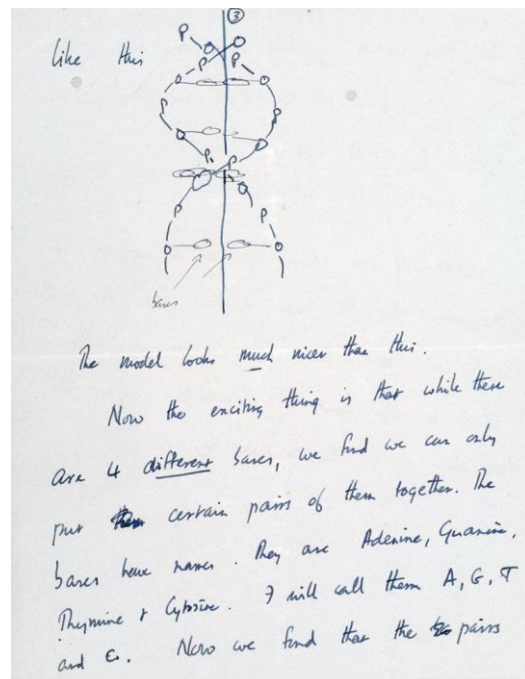 3
like this
P
P
P
P
P
P
P
P
P
bases
The model looks much nicer than this.
Now the exciting thing is that while there
are 4 different bases, we find we can only
put certain pairs of them together. The
bases have names. They are Adenine, Guanine,
Thymine & Cytosine. I will call them A, G, T
and C. Now we find that the pairs